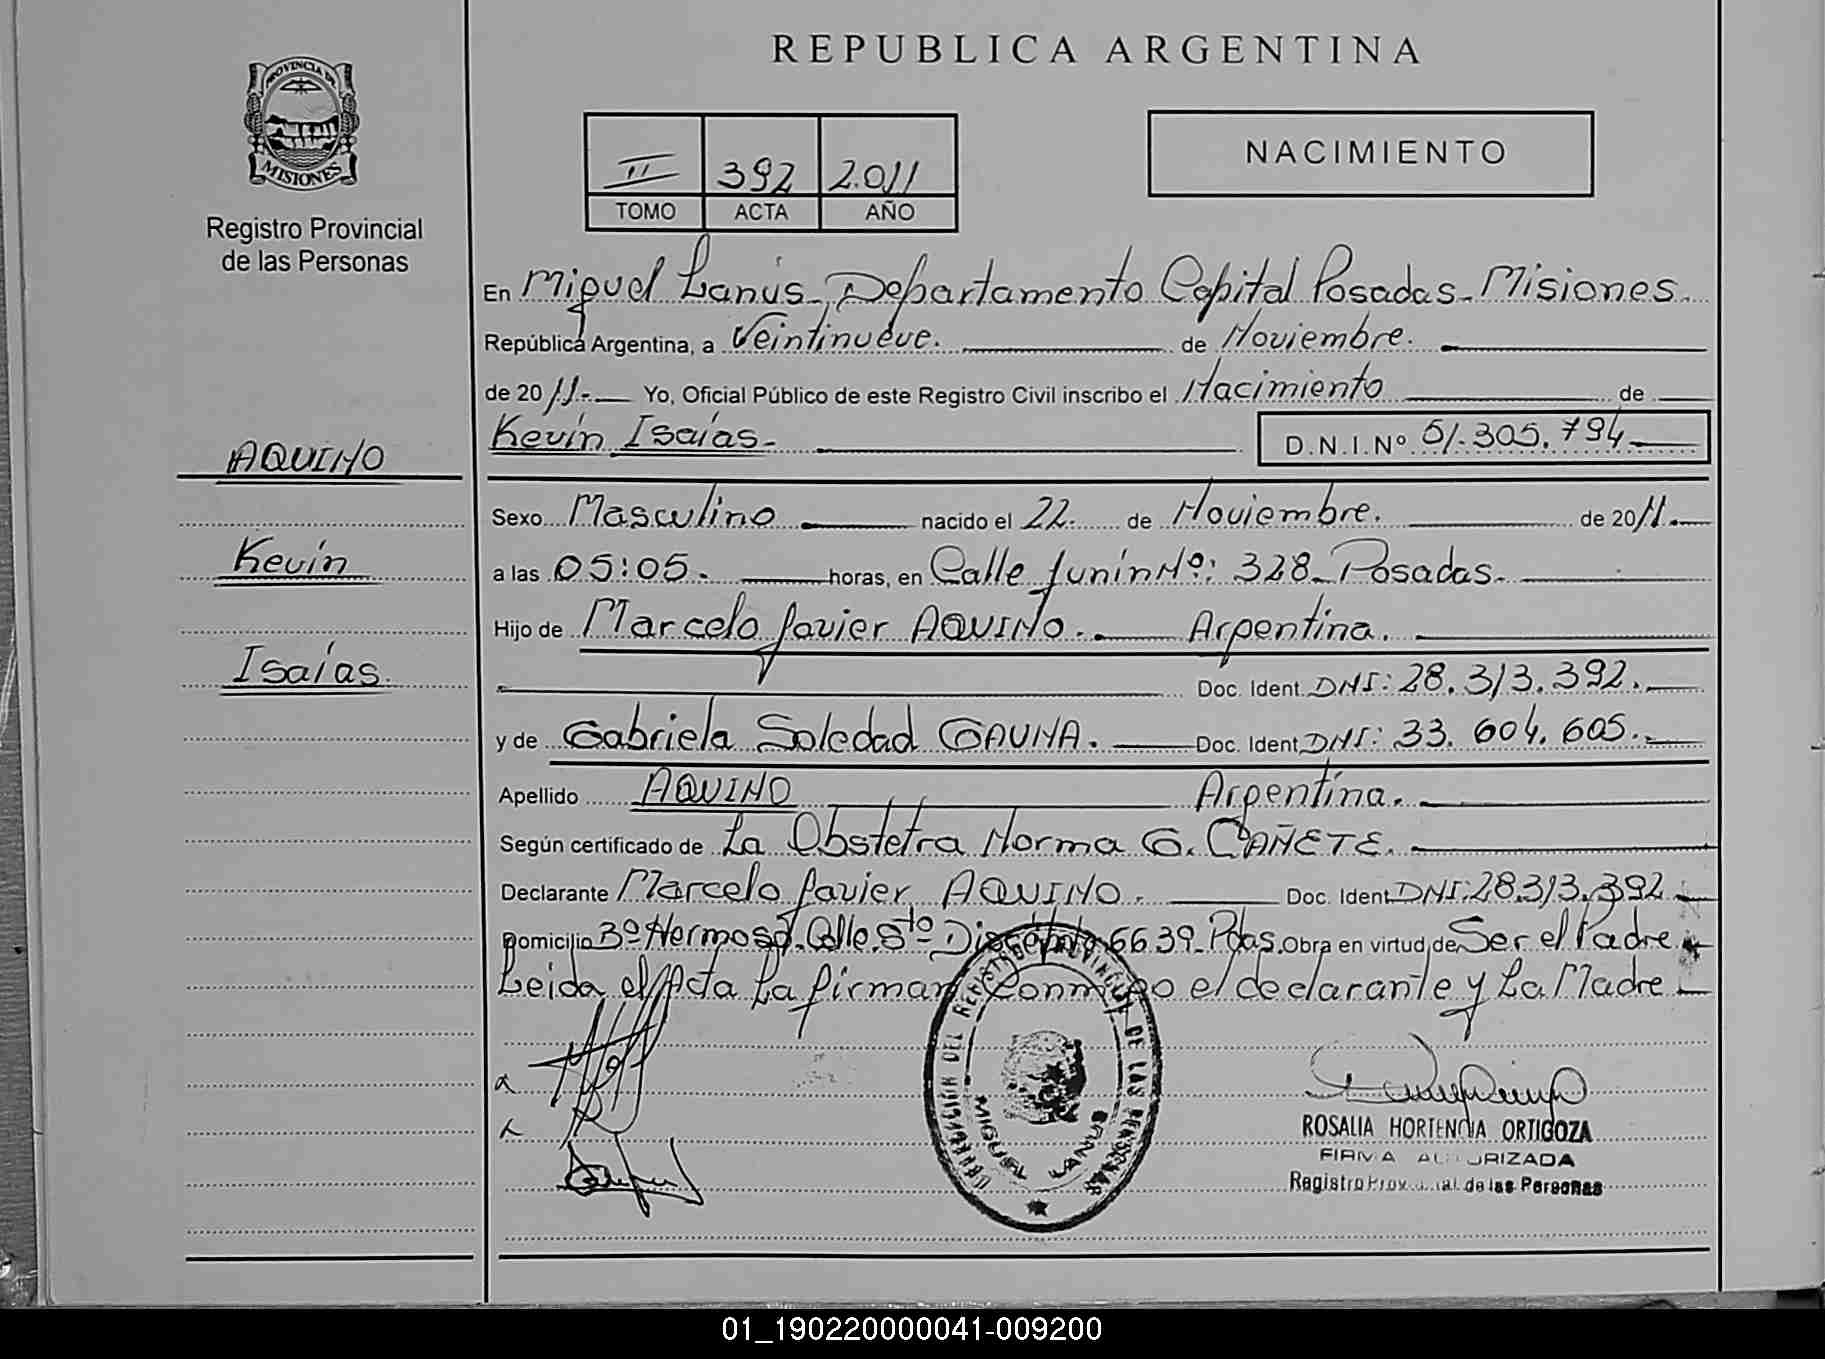 REPUBLICA ARGENTINA
PROVINCIA DE
MISIONES
Registro Provincial
de las Personas
II 392 2.011
TOMO ACTA AÑO
NACIMIENTO
En Miguel Lanús, Departamento Capital Posadas- Misiones.
República Argentina, a Veintinueve. de Noviembre.
de 20 11.- Yo, Oficial Público de este Registro Civil inscribo el Nacimiento de
Kevin Isaías- D.N.I.Nº 51.305.794
AQUINO
Kevin
Isaías.
Sexo Masculino nacido el 22. de Noviembre. de 2011.
a las 05:05. horas, en Calle Junín Nº: 328- Posadas-
Hijo de Marcelo Javier AQUINO. Argentina.
Doc. Ident. DNI: 28.313.392.
y de Gabriela Soledad GAUNA. Doc. Ident. DNI: 33.604.605.
Apellido AQUINO Argentina.
Según certificado de La Obstetra Norma G. CAÑETE.
Declarante Marcelo Javier AQUINO. Doc. Ident. DNI: 28.313.392
Domicilio Bº Hermoso. Calle. Sto 6639- Pdas. Obra en virtud de Ser el Padre
Leida el Acta La firman Conmigo el declarante y La Madre
DEL REGISTRO PROVINCIAL DE LAS PERSONAS
MIGUEL LANUS
ROSALIA HORTENCIA ORTIGOZA
FIRMA AUTORIZADA
Registro Provincial de las Personas
01_190220000041-009200